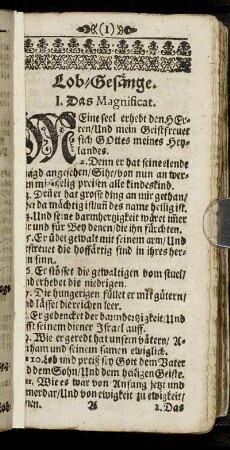 (1)
Lob-Gesänge.
I. Das Magnificat.
MEine seel erhebt den HEr-
ren/Und mein Geist freuet
sich GOttes meines Hey-
landes.
2. Denn er hat seine elende
magd angesehen/Sihe/von nun an wer-
den mich selig preisen alle kindeskind.
3. Deñ er hat grosse ding an mir gethan/
der da mächtig ist/uñ des name heilig ist.
4. Und seine barmhertzigkeit wäret imer
für und für Bey denen/die ihn fürchten.
5. Er übet gewalt mit seinem arm/Und
zerstreuet die hoffärtig sind in ihres her-
zen sinn.
6. Er stösset die gewaltigen vom stuel/
und erhebet die niedrigen.
7. Die hungerigen füllet er mit gütern/
und lässet die reichen leer.
8. Er gedencket der barmhertzigkeit/Und
hilfft seinem diener Israel auff.
9. Wie er geredt hat unsern vätern/A-
braham und seinem samen ewiglich.
10. Lob und preiß sey Gott dem Vater
und dem Sohn/Und dem heiligen Geiste.
11. Wie es war von Anfang jetzt und
immerdar/Und von ewigkeit zu ewigkeit/
Amen. A 2. Das